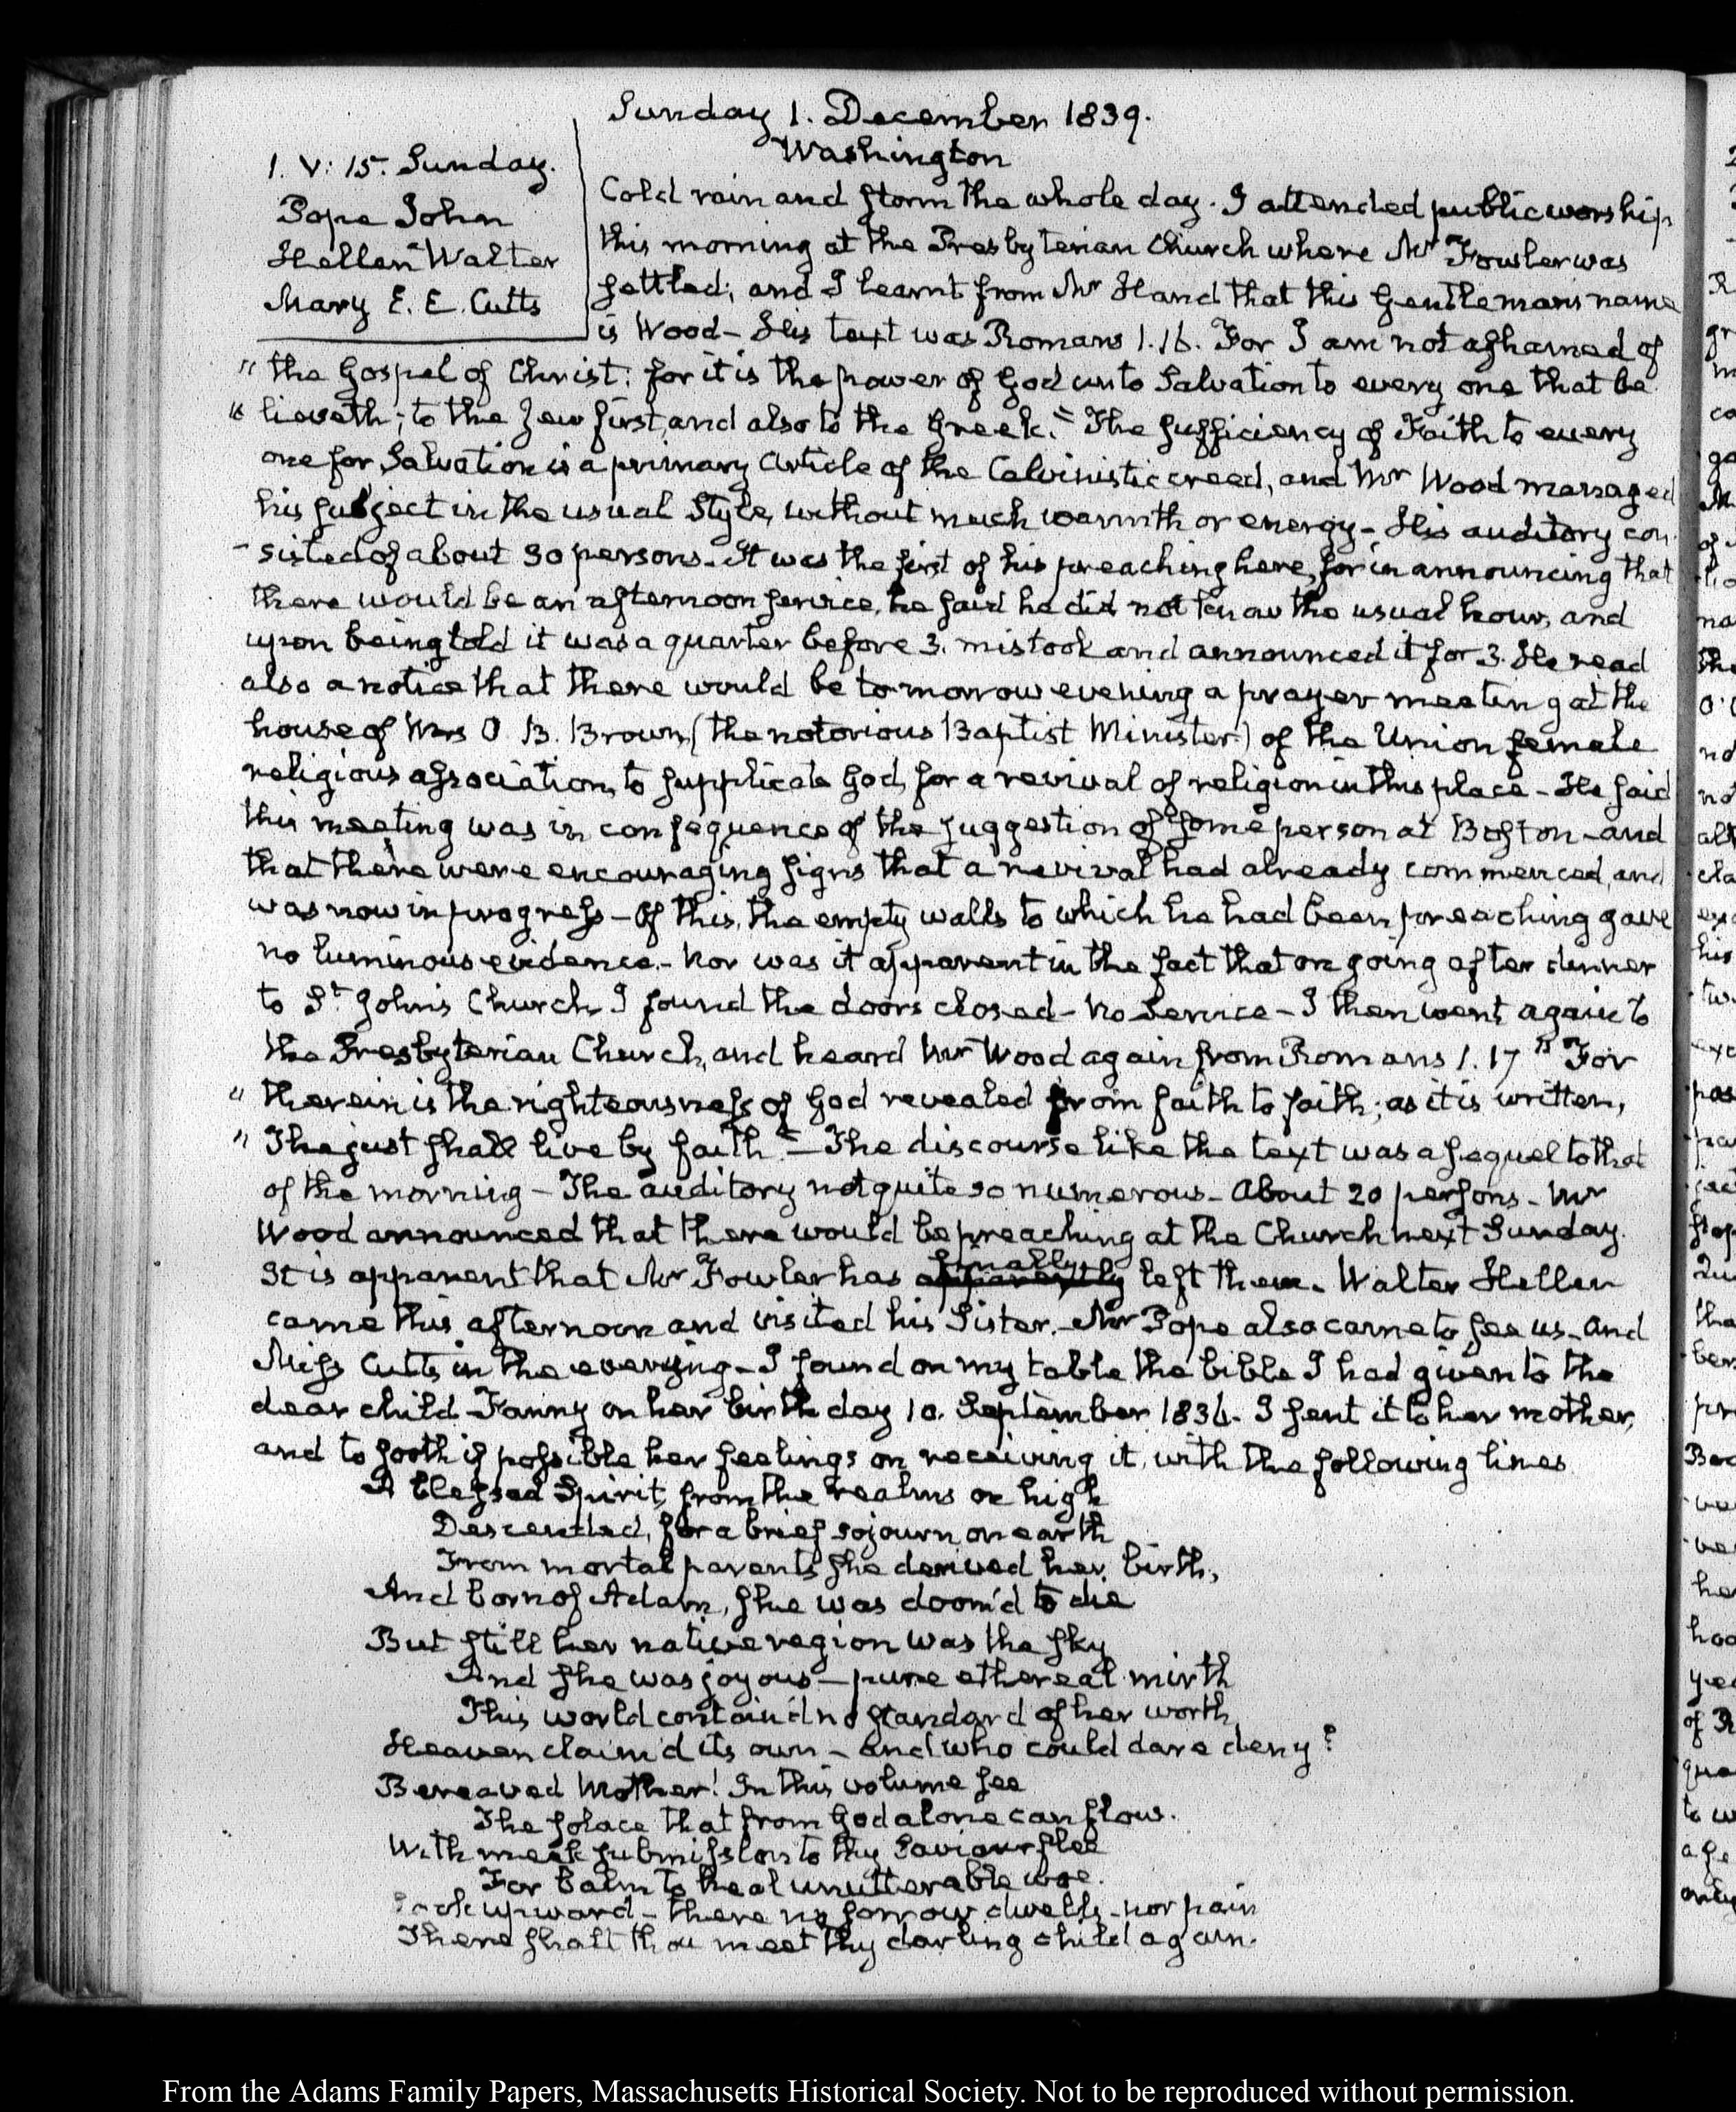 Sunday 1. December 1839.
Washington
1. V: 15. Sunday.
Pope John
Hellen Walter
Mary E. E. Cutts
Cold rain and storm the whole day. I attended public worship
this morning at the Presbyterian Church where Mr Fowler was
settled; and I learnt from Mr Hand that this Gentleman's name
is Wood— His text was Romans 1.16. For I am not ashamed of
" the Gospel of Christ: for it is the power of God unto Salvation to every one that be
" lieveth; to the Jew first, and also to the Greek." The sufficiency of Faith to every
one for Salvation is a primary Article of the Calvinistic creed, and Mr Wood managed
his subject in the usual Style, without much warmth or energy— His auditory con
-sisted of about 30 persons. It was the first of his preaching here, for in announcing that
there would be an afternoon service, he said he did not know the usual hour, and
upon being told it was a quarter before 3. mistook and announced it for 3. He read
also a notice that there would be to-morrow evening a prayer meeting at the
house of Mrs O. B. Brown (the notorious Baptist Minister) of the Union female
religious association, to supplicate God, for a revival of religion in this place— He said
this meeting was in consequence of the suggestion of some person at Boston—and
that there were encouraging signs that a revival had already commenced, and
was now in progress— Of this, the empty walls to which he had been preaching gave
no luminous evidence.— Nor was it apparent in the fact that on going after dinner
to St John's Church I found the doors closed— No Service— I then went again to
the Presbyterian Church, and heard Mr Wood again from Romans 1.17 " For
" therein is the righteousness of God revealed from faith to faith; as it is written,
" The just shall live by faith."— The discourse like the text was a sequel to that
of the morning— The auditory not quite so numerous— About 20 persons— Mr
Wood announced that there would be preaching at the Church next Sunday.
It is apparent that Mr Fowler has apparently finally left them. Walter Hellen
came this afternoon and visited his Sister.— Mr Pope also came to see us—and
Miss Cutts in the evening— I found on my table the bible I had given to the
dear child Fanny on her birth day 10. September 1836— I sent it to her mother,
and to sooth if possible her feelings on receiving it, with the following lines
A blessed Spirit, from the realms on high
Descended, for a brief sojourn on earth
From mortal parents she derived her birth,
And born of Adam, she was doom'd to die
But still her native region was the sky
And she was joyous— pure ethereal mirth
This world contain'd no standard of her worth
Heaven claim'd its own— and who could dare deny?
Bereaved Mother! In this volume see
The solace that from God alone can flow.
With meek submission to thy Saviour flee
For balm to heal unutterable woe.
Look upward— there no sorrow dwells— nor pain
There shalt thou meet thy darling child again.
From the Adams Family Papers, Massachusetts Historical Society. Not to be reproduced without permission.